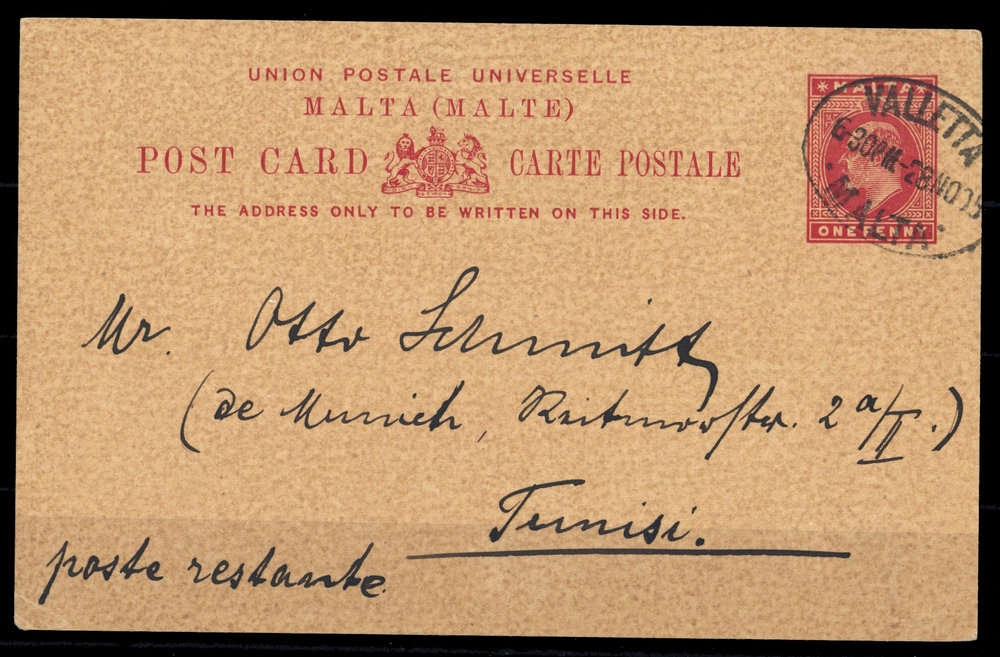 UNION POSTALE UNIVERSELLE
MALTA (MALTE)
POST CARD CARTE POSTALE
THE ADDRESS ONLY TO BE WRITTEN ON THIS SIDE.
MALTA
ONE PENNY
VALLETTA
MALTA
Mr. Otto Schmitt
(de Munich, 2 a/II.)
Tunisi.
poste restante